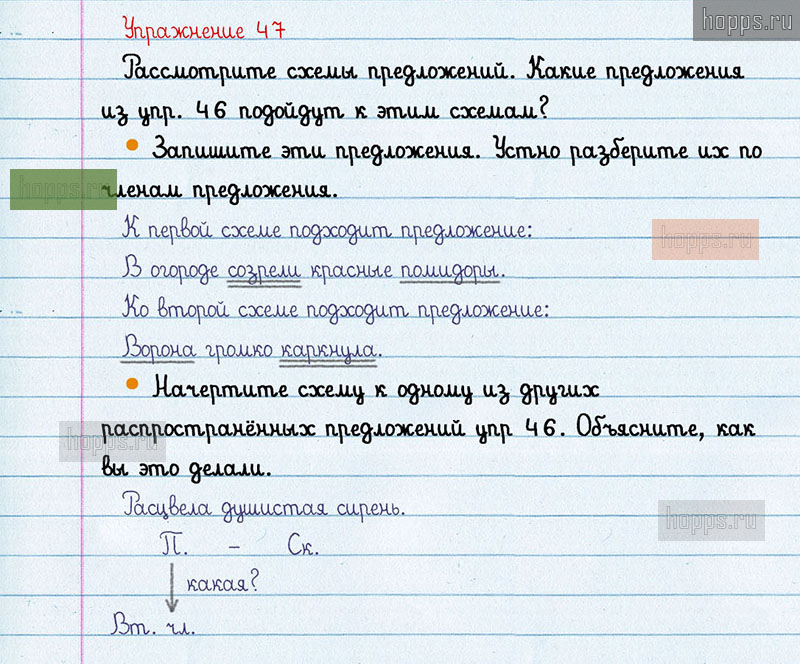 hopps.ru
Упражнение 47
Рассмотрите схемы предложений. Какие предложения
из упр. 46 подойдут к этим схемам?
• Запишите эти предложения. Устно разберите их по
hopps.ru
членам предложения.
К первой схеме подходит предложение:
hopps.ru
В огороде созрели красные помидоры.
Ко второй схеме подходит предложение:
Ворона громко каркнула.
• Начертите схему к одному из других
hopps.ru
распространённых предложений упр 46. Объясните, как
вы это делали.
Расцвела душистая сирень.
hopps.ru
П. – Ск.
какая?
Вт. чл.